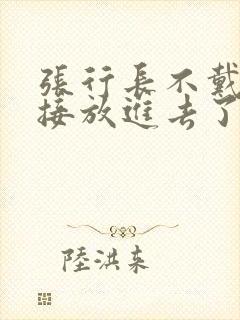 張行長不戴
接放進去了
陸洪来